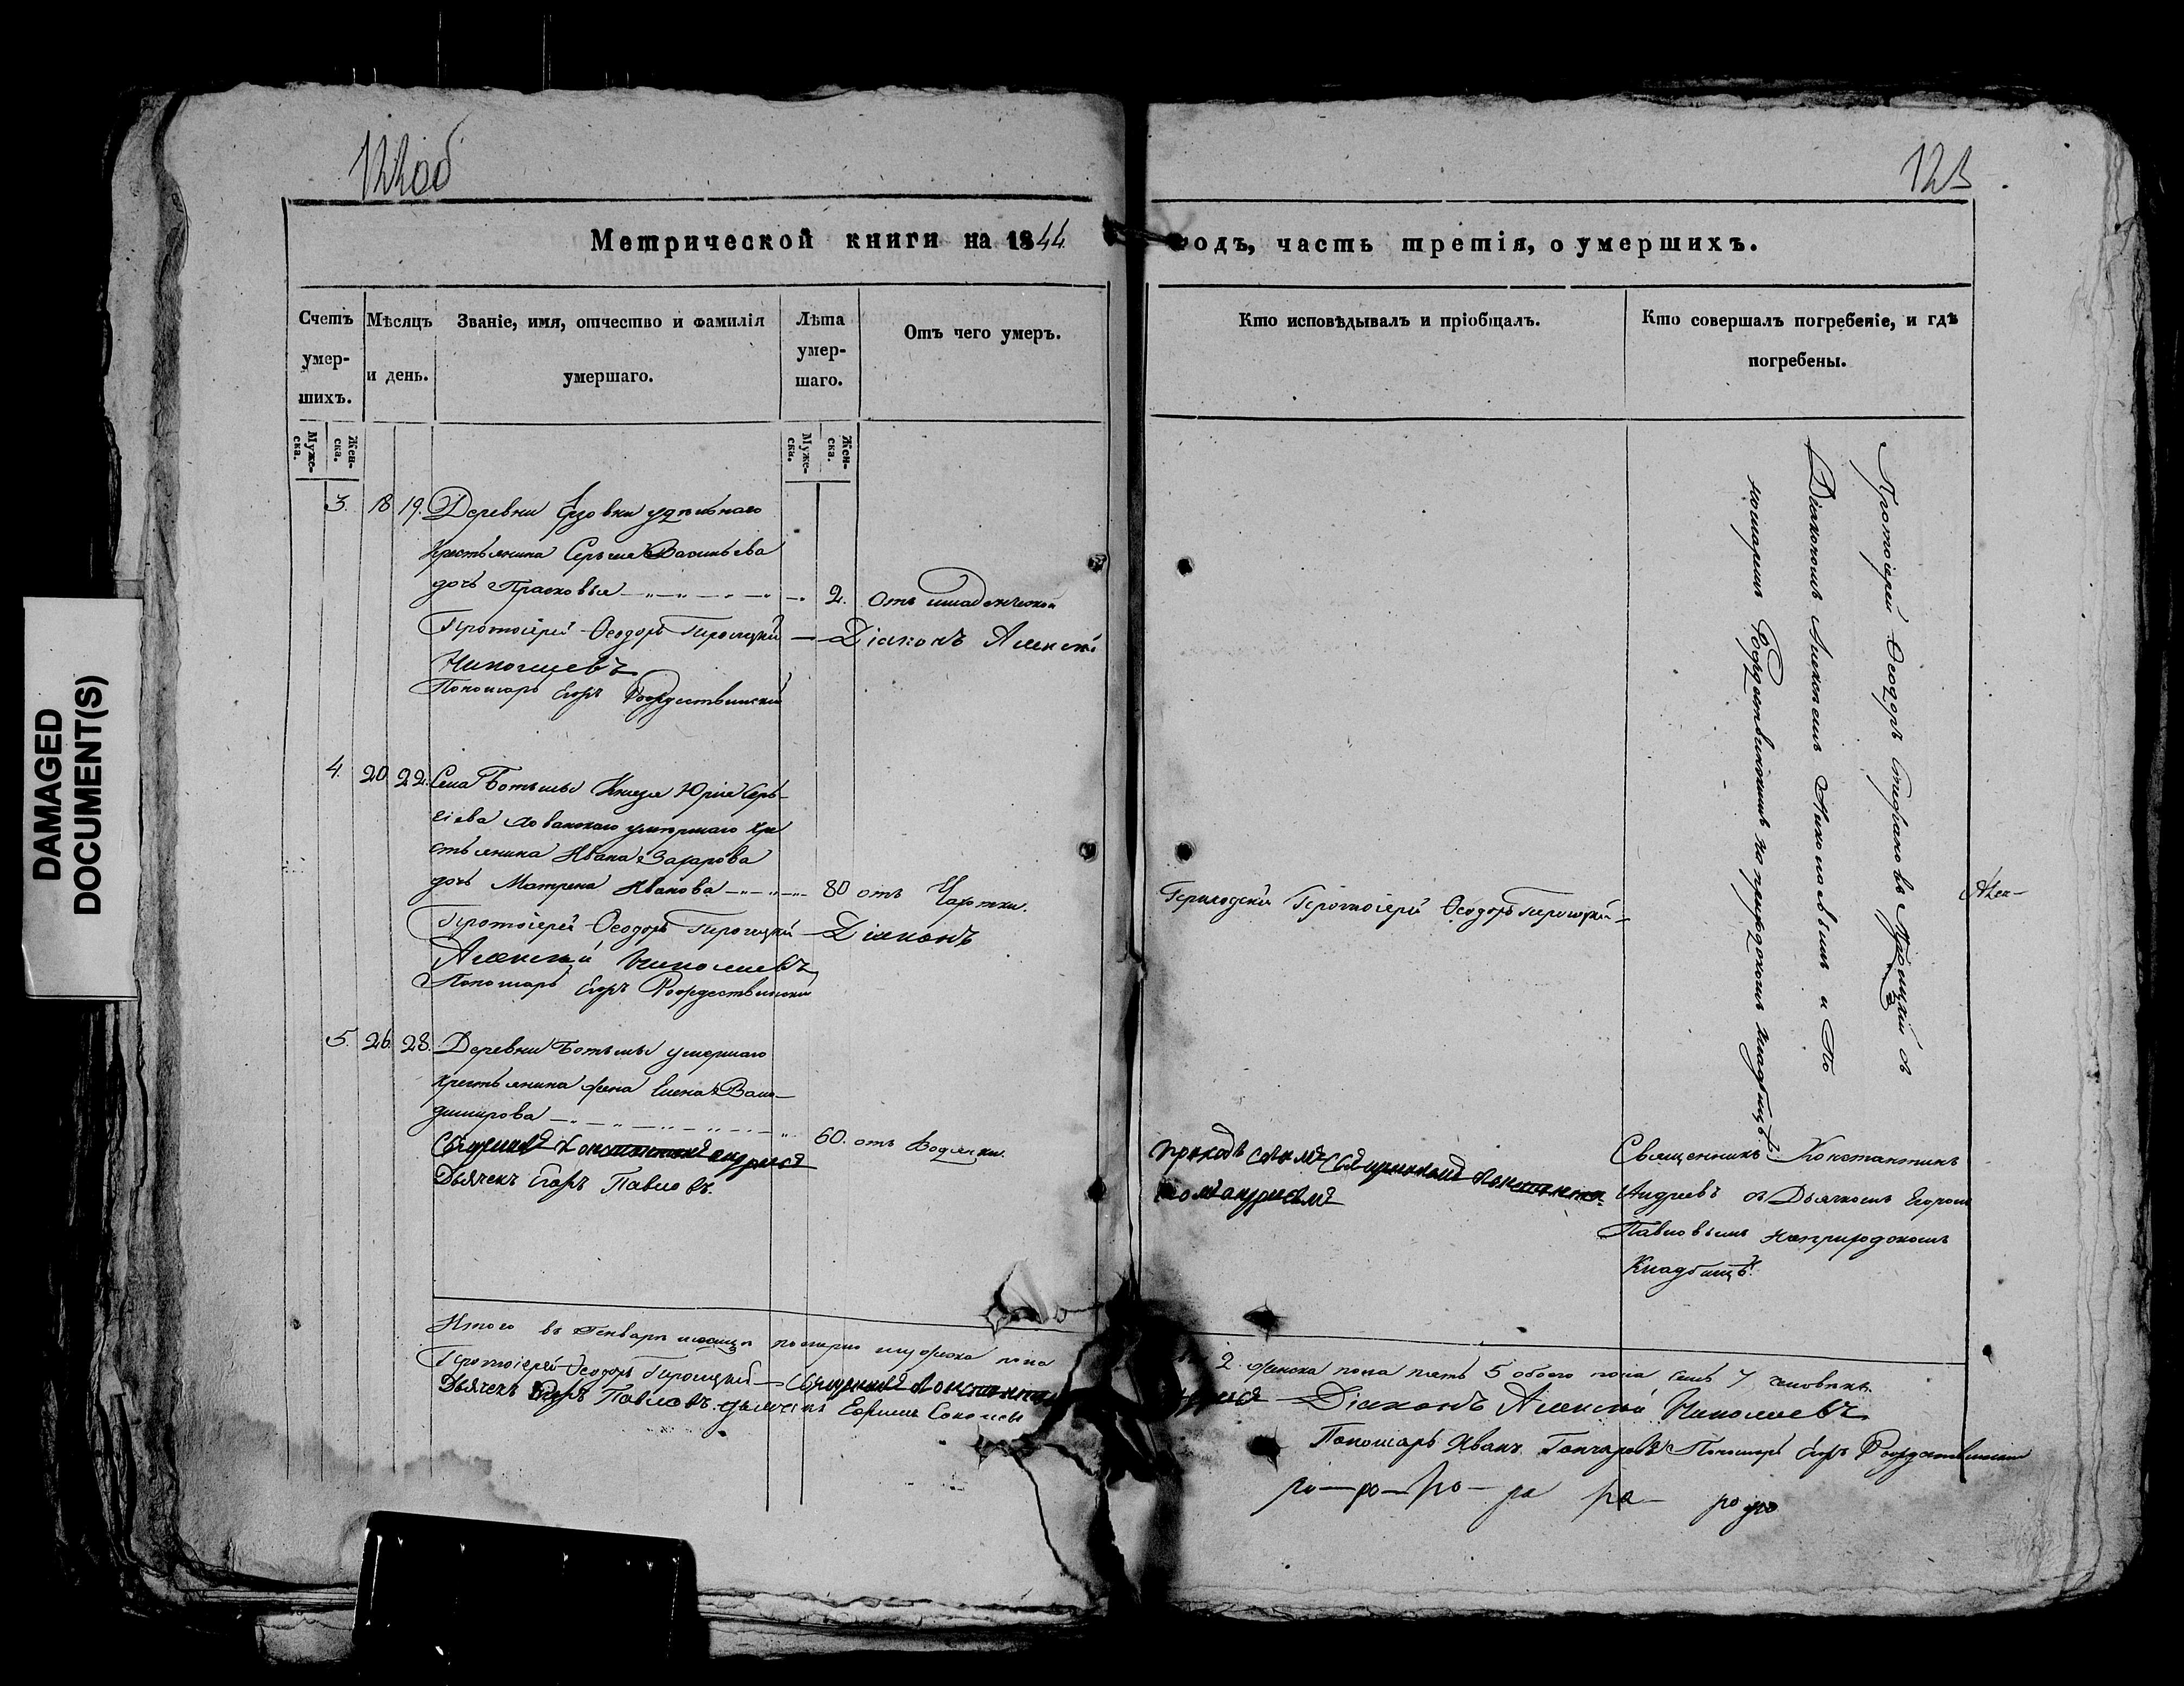 122об
123
Метрической книги на 1844
годъ, часть третія, о умершихъ.
Счетъ умер-шихъ.
Мѣсяцъ и день.
Званіе, имя, отчество и фамилія умершаго.
Лѣта умер-шаго.
Отъ чего умеръ.
Кто исповѣдывалъ и пріобщалъ.
Кто совершалъ погребеніе, и гдѣ погребены.
Муже-ска.
Жен-ска.
Муже-ска.
Жен-ска.
3. 18 19. Деревни Ерзовки удѣльнаго
крестьянина Сергея Васильева
дочь Прасковья 2. Отъ младенческой
Протоіерей Ѳеодоръ Діаконъ Алексѣй
Николаевъ
Пономарь Егоръ Рождественскій
4. 20 22. Села Ботьмы Князя Юрія Серг-
еіева Хованскаго умершаго кре
стьянина Ивана Захарова
дочь Матрена Иванова 80 отъ Чахотки.
Протоіерей Ѳеодоръ Діаконъ
Алексѣй Николаевъ
Пономарь Егоръ Рождественскій
Приходскій Протоіерей Ѳеодоръ
5. 26 28. Деревни Ботьмы умершаго
крестьянина жена Елена Вла-
димирова 60. отъ Водянки.
Священникъ Константинъ Андреевъ
Дьячекъ Егоръ Павловъ.
Священникомъ Константи-
номъ Андреевымъ
Протоіерей Ѳеодоръ съ
Діакономъ Алексѣемъ Николаевымъ и По
номаремъ Рождественскимъ на приходскомъ кладбищѣ.
Священникъ Константинъ
Андреевъ съ Дьячкомъ Егоромъ
Павловымъ на приходскомъ
Кладбищѣ.
Алек-
Итого въ Генварѣ мѣсяцѣ померло мужеска пола
2. женска пола пять 5 обоего пола семь 7 человѣкъ.
Протоіерей Ѳеодоръ Священникъ Константинъ
Діаконъ Алексѣй Николаевъ
Дьячекъ Егоръ Павловъ. дьячекъ Ефимъ Соколовъ
Пономарь Иванъ Гончаровъ Пономарь Егоръ Рождественскій
ро—ро—ро—ра ра— ро ро
DAMAGED
DOCUMENT(S)